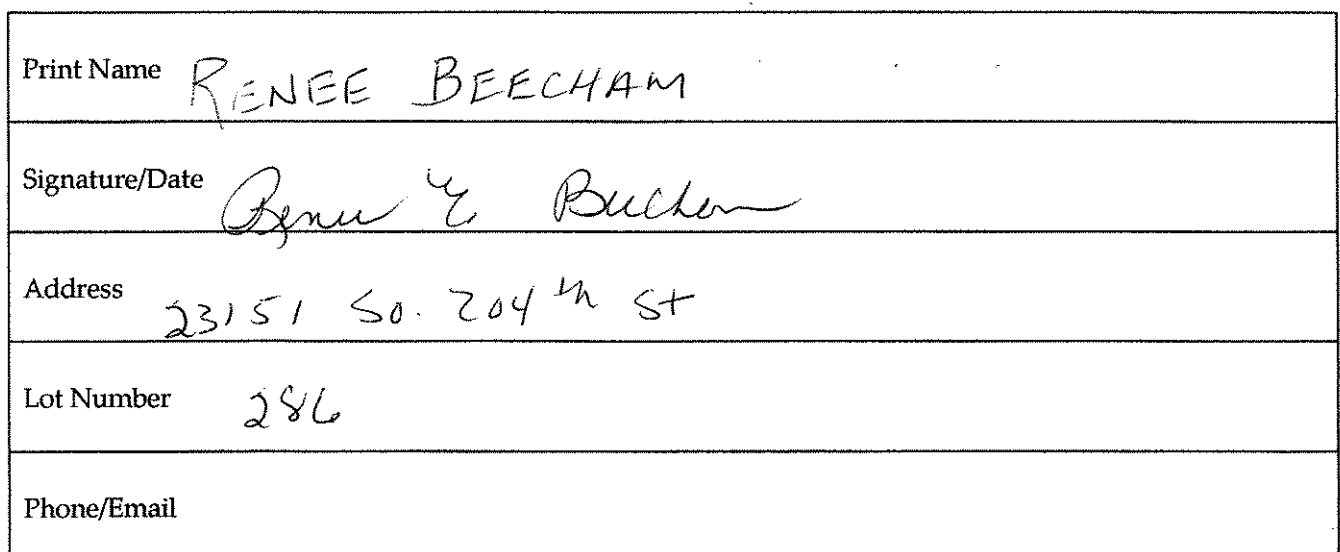 Print Name RENEE BEECHAM
Signature/Date Renee E Beecham
Address 23151 So. 204th St
Lot Number 286
Phone/Email